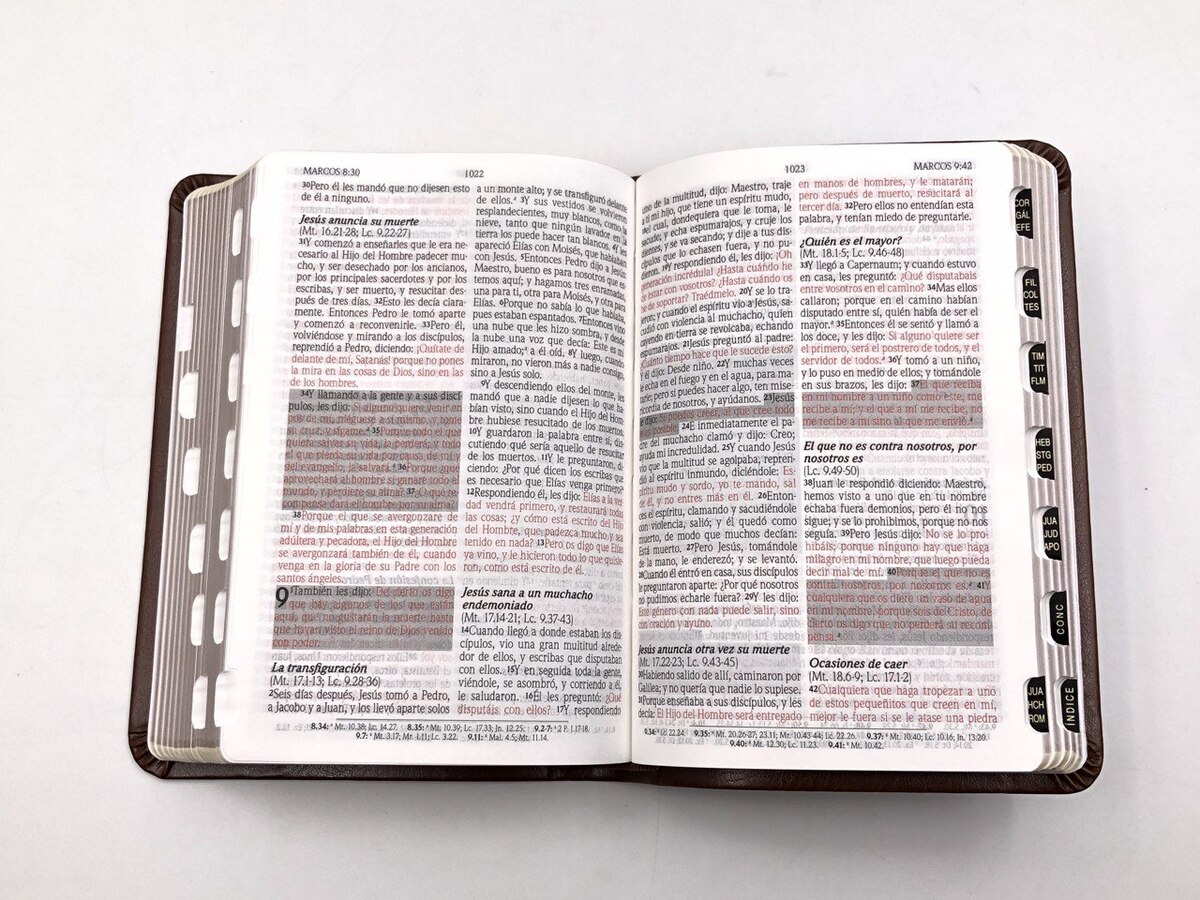 MARCOS 8:30
1022
30Pero él les mandó que no dijesen esto
de él a ninguno.
Jesús anuncia su muerte
(Mt. 16.21-28; Lc. 9.22-27)
31Y comenzó a enseñarles que le era ne-
cesario al Hijo del Hombre padecer mu-
cho, y ser desechado por los ancianos,
por los principales sacerdotes y por los
escribas, y ser muerto, y resucitar des-
pués de tres días. 32Esto les decía clara-
mente. Entonces Pedro le tomó aparte
y comenzó a reconvenirle. 33Pero él,
volviéndose y mirando a los discípulos,
reprendió a Pedro, diciendo: ¡Quítate de
delante de mí, Satanás! porque no pones
la mira en las cosas de Dios, sino en las
de los hombres.
34Y llamando a la gente y a sus discí-
pulos, les dijo: Si alguno quiere venir en
pos de mí, niéguese a sí mismo, y tome
su cruz, y sígame. 35Porque todo el que
quiera salvar su vida, la perderá; y todo
el que pierda su vida por causa de mí y
del evangelio, la salvará. 36Porque ¿qué
aprovechará al hombre si ganare todo el
mundo, y perdiere su alma? 37¿O qué re-
compensa dará el hombre por su alma?
38Porque el que se avergonzare de
mí y de mis palabras en esta generación
adúltera y pecadora, el Hijo del Hombre
se avergonzará también de él, cuando
venga en la gloria de su Padre con los
santos ángeles.
9 También les dijo: De cierto os digo
que hay algunos de los que están
aquí, que no gustarán la muerte hasta
que hayan visto el reino de Dios venido
con poder.
La transfiguración
(Mt. 17.1-13; Lc. 9.28-36)
2Seis días después, Jesús tomó a Pedro,
a Jacobo y a Juan, y los llevó aparte solos
a un monte alto; y se transfiguró delante
de ellos. 3Y sus vestidos se volvieron
resplandecientes, muy blancos, como la
nieve, tanto que ningún lavador en la
tierra los puede hacer tan blancos. 4Y les
apareció Elías con Moisés, que hablaban
con Jesús. 5Entonces Pedro dijo a Jesús:
Maestro, bueno es para nosotros que es-
temos aquí; y hagamos tres enramadas,
una para ti, otra para Moisés, y otra para
Elías. 6Porque no sabía lo que hablaba,
pues estaban espantados. 7Entonces vino
una nube que les hizo sombra, y desde
la nube una voz que decía: Este es mi
Hijo amado; a él oíd. 8Y luego, cuando
miraron, no vieron más a nadie consigo,
sino a Jesús solo.
9Y descendiendo ellos del monte, les
mandó que a nadie dijesen lo que ha-
bían visto, sino cuando el Hijo del Hom-
bre hubiese resucitado de los muertos.
10Y guardaron la palabra entre sí, dis-
cutiendo qué sería aquello de resucitar
de los muertos. 11Y le preguntaron, di-
ciendo: ¿Por qué dicen los escribas que
es necesario que Elías venga primero?
12Respondiendo él, les dijo: Elías a la ver-
dad vendrá primero, y restaurará todas
las cosas; ¿y cómo está escrito del Hijo
del Hombre, que padezca mucho y sea
tenido en nada? 13Pero os digo que Elías
ya vino, y le hicieron todo lo que quisie-
ron, como está escrito de él.
Jesús sana a un muchacho
endemoniado
(Mt. 17.14-21; Lc. 9.37-43)
14Cuando llegó a donde estaban los dis-
cípulos, vio una gran multitud alrede-
dor de ellos, y escribas que disputaban
con ellos. 15Y en seguida toda la gente,
viéndole, se asombró, y corriendo a él,
le saludaron. 16Él les preguntó: ¿Qué
disputáis con ellos? 17Y respondiendo
8.34: Mt. 10.38; Lc. 14.27. 8.35: Mt. 10.39; Lc. 17.33; Jn. 12.25; 9.2-7: 2 P. 1.17-18.
9.7: Mt. 3.17; Mr. 1.11; Lc. 3.22. 9.11: Mal. 4.5; Mt. 11.14.
1023
MARCOS 9:42
uno de la multitud, dijo: Maestro, traje
a ti mi hijo, que tiene un espíritu mudo,
el cual, dondequiera que le toma, le
sacude; y echa espumarajos, y cruje los
dientes, y se va secando; y dije a tus dis-
cípulos que lo echasen fuera, y no pu-
dieron. 19Y respondiendo él, les dijo: ¡Oh
generación incrédula! ¿Hasta cuándo he
de estar con vosotros? ¿Hasta cuándo os
he de soportar? Traédmelo. 20Y se lo tra-
jeron; y cuando el espíritu vio a Jesús, sa-
cudió con violencia al muchacho, quien
cayendo en tierra se revolcaba, echando
espumarajos. 21Jesús preguntó al padre:
¿Cuánto tiempo hace que le sucede esto?
Y él dijo: Desde niño. 22Y muchas veces
le echa en el fuego y en el agua, para ma-
tarle; pero si puedes hacer algo, ten mise-
ricordia de nosotros, y ayúdanos. 23Jesús
le dijo: Si puedes creer, al que cree todo
le es posible. 24E inmediatamente el pa-
dre del muchacho clamó y dijo: Creo;
ayuda mi incredulidad. 25Y cuando Jesús
vio que la multitud se agolpaba, repren-
dió al espíritu inmundo, diciéndole: Es-
píritu mudo y sordo, yo te mando, sal
de él, y no entres más en él. 26Enton-
ces el espíritu, clamando y sacudiéndole
con violencia, salió; y él quedó como
muerto, de modo que muchos decían:
Está muerto. 27Pero Jesús, tomándole
de la mano, le enderezó; y se levantó.
28Cuando él entró en casa, sus discípulos
le preguntaron aparte: ¿Por qué nosotros
no pudimos echarle fuera? 29Y les dijo:
Este género con nada puede salir, sino
con oración y ayuno.
Jesús anuncia otra vez su muerte
(Mt. 17.22-23; Lc. 9.43-45)
30Habiendo salido de allí, caminaron por
Galilea; y no quería que nadie lo supiese.
31Porque enseñaba a sus discípulos, y les
decía: El Hijo del Hombre será entregado
en manos de hombres, y le matarán;
pero después de muerto, resucitará al
tercer día. 32Pero ellos no entendían esta
palabra, y tenían miedo de preguntarle.
¿Quién es el mayor?
(Mt. 18.1-5; Lc. 9.46-48)
33Y llegó a Capernaum; y cuando estuvo
en casa, les preguntó: ¿Qué disputabais
entre vosotros en el camino? 34Mas ellos
callaron; porque en el camino habían
disputado entre sí, quién había de ser el
mayor. 35Entonces él se sentó y llamó a
los doce, y les dijo: Si alguno quiere ser
el primero, será el postrero de todos, y el
servidor de todos. 36Y tomó a un niño,
y lo puso en medio de ellos; y tomándole
en sus brazos, les dijo: 37El que reciba
en mi nombre a un niño como este, me
recibe a mí; y el que a mí me recibe, no
me recibe a mí sino al que me envió.
El que no es contra nosotros, por
nosotros es
(Lc. 9.49-50)
38Juan le respondió diciendo: Maestro,
hemos visto a uno que en tu nombre
echaba fuera demonios, pero él no nos
sigue; y se lo prohibimos, porque no nos
seguía. 39Pero Jesús dijo: No se lo pro-
hibáis; porque ninguno hay que haga
milagro en mi nombre, que luego pueda
decir mal de mí. 40Porque el que no es
contra nosotros, por nosotros es. 41Y
cualquiera que os diere un vaso de agua
en mi nombre, porque sois de Cristo, de
cierto os digo que no perderá su recom-
pensa.
Ocasiones de caer
(Mt. 18.6-9; Lc. 17.1-2)
42Cualquiera que haga tropezar a uno
de estos pequeñitos que creen en mí,
mejor le fuera si se le atase una piedra
9.34: Lc. 22.24. 9.35: Mt. 20.26-27; 23.11; Mr. 10.43-44; Lc. 22.26. 9.37: Mt. 10.40; Lc. 10.16; Jn. 13.20.
9.40: Mt. 12.30; Lc. 11.23. 9.41: Mt. 10.42.
COR
GÁL
EFE
FIL
COL
TES
TIM
TIT
FLM
HEB
STG
PED
JUA
JUD
APO
CONC
JUA
HCH
ROM
ÍNDICE